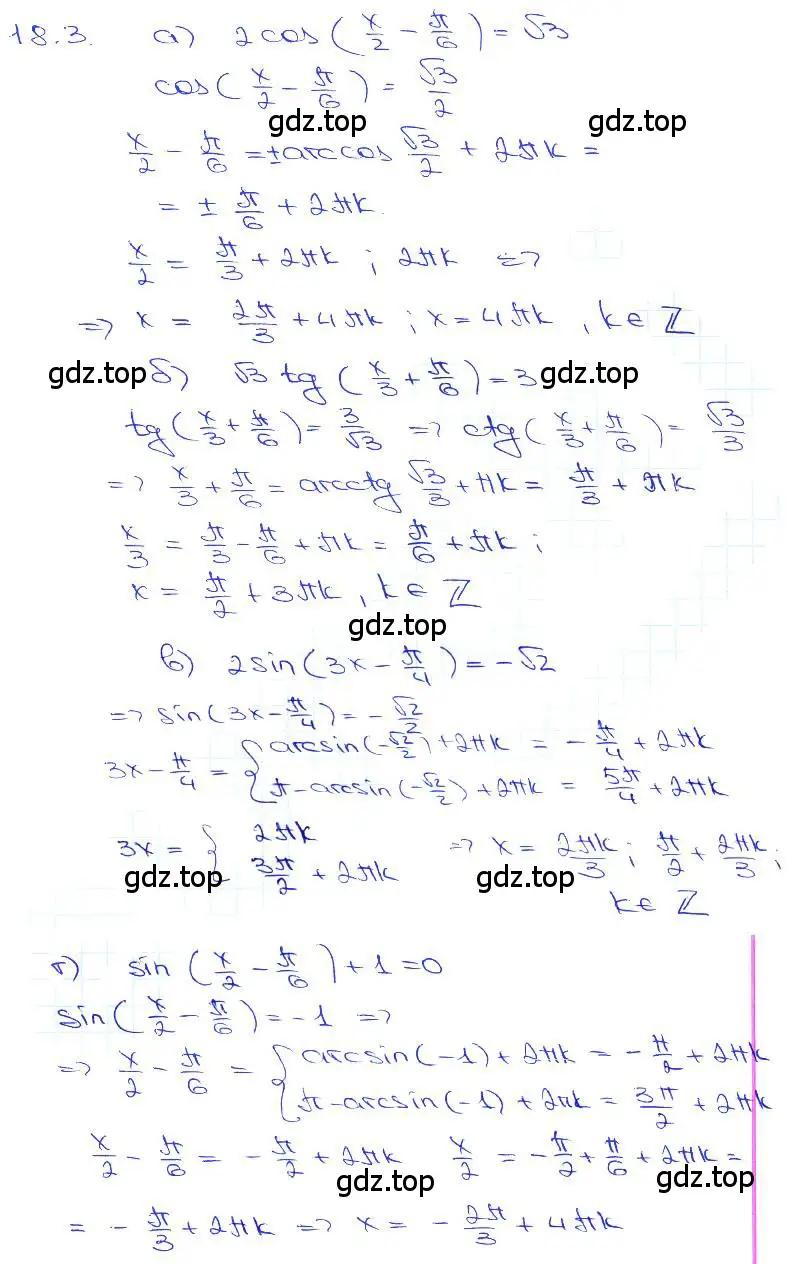 18.3. а) 2cos(x/2 - π/6) = √3
cos(x/2 - π/6) = √3/2
gdz.top gdz.top
x/2 - π/6 = ±arccos √3/2 + 2πk =
= ± π/6 + 2πk.
x/2 = π/3 + 2πk ; 2πk =>
=> x = 2π/3 + 4πk ; x = 4πk , k ∈ ℤ
gdz.top б) √3 tg (x/3 + π/6) = 3 gdz.top
tg(x/3 + π/6) = 3/√3 => ctg(x/3 + π/6) = √3/3
=> x/3 + π/6 = arcctg √3/3 + πk = π/3 + πk
x/3 = π/3 - π/6 + πk = π/6 + πk ;
x = π/2 + 3πk , k ∈ ℤ
gdz.top
в) 2sin(3x - π/4) = -√2
=> sin(3x - π/4) = -√2/2
3x - π/4 = { arcsin(-√2/2) + 2πk = -π/4 + 2πk
π - arcsin(-√2/2) + 2πk = 5π/4 + 2πk
3x = { 2πk => x = 2πk/3 ; π/2 + 2πk/3 ;
3π/2 + 2πk
gdz.top gdz.top
k ∈ ℤ
г) sin (x/2 - π/6) + 1 = 0
sin(x/2 - π/6) = -1 =>
=> x/2 - π/6 = { arcsin(-1) + 2πk = -π/2 + 2πk
π - arcsin(-1) + 2πk = 3π/2 + 2πk
x/2 - π/6 = -π/2 + 2πk x/2 = -π/2 + π/6 + 2πk =
gdz.top gdz.top
= -π/3 + 2πk => x = -2π/3 + 4πk